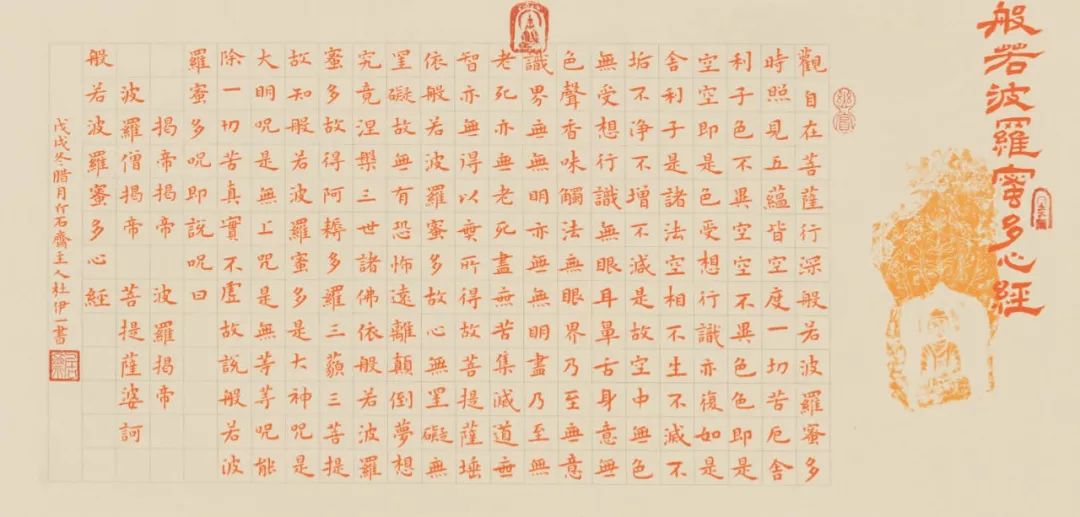 般若波羅蜜多心經
觀自在菩薩行深般若波羅蜜多
時照見五蘊皆空度一切苦厄舍
利子色不異空空不異色色即是
空空即是色受想行識亦復如是
舍利子是諸法空相不生不滅不
垢不淨不增不減是故空中無色
無受想行識無眼耳鼻舌身意無
色聲香味觸法無眼界乃至無意
識界無無明亦無無明盡乃至無
老死亦無老死盡無苦集滅道無
智亦無得以無所得故菩提薩埵
依般若波羅蜜多故心無罣礙無
罣礙故無有恐怖遠離顛倒夢想
究竟涅槃三世諸佛依般若波羅
蜜多故得阿耨多羅三藐三菩提
故知般若波羅蜜多是大神咒是
大明咒是無上咒是無等等咒能
除一切苦真實不虛故說般若波
羅蜜多咒即說咒曰
揭帝揭帝 波羅揭帝
波羅僧揭帝 菩提薩婆訶
般若波羅蜜多心經
戊戌冬腊月石齋主人杜伊一書